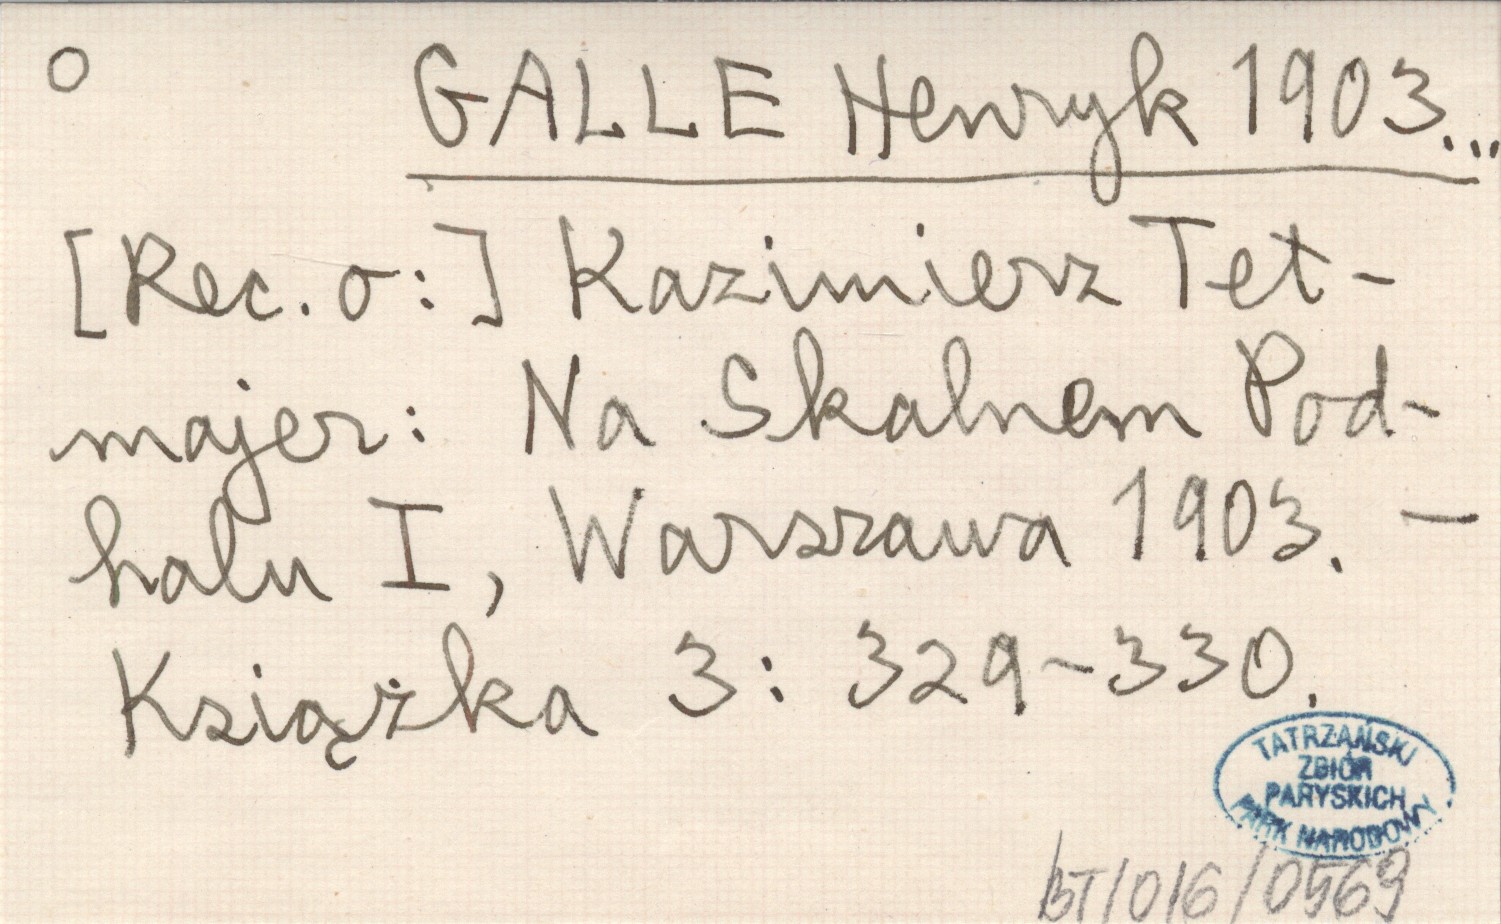 O GALLE Henryk 1903...
[Rec. o:] Kazimierz Tet-
majer: Na Skalnem Pod-
halu I, Warszawa 1903. —
Książka 3: 329-330.
TATRZAŃSKI
ZBIÓR
PARYSKICH
PARK NARODOWY
BT/016/0569